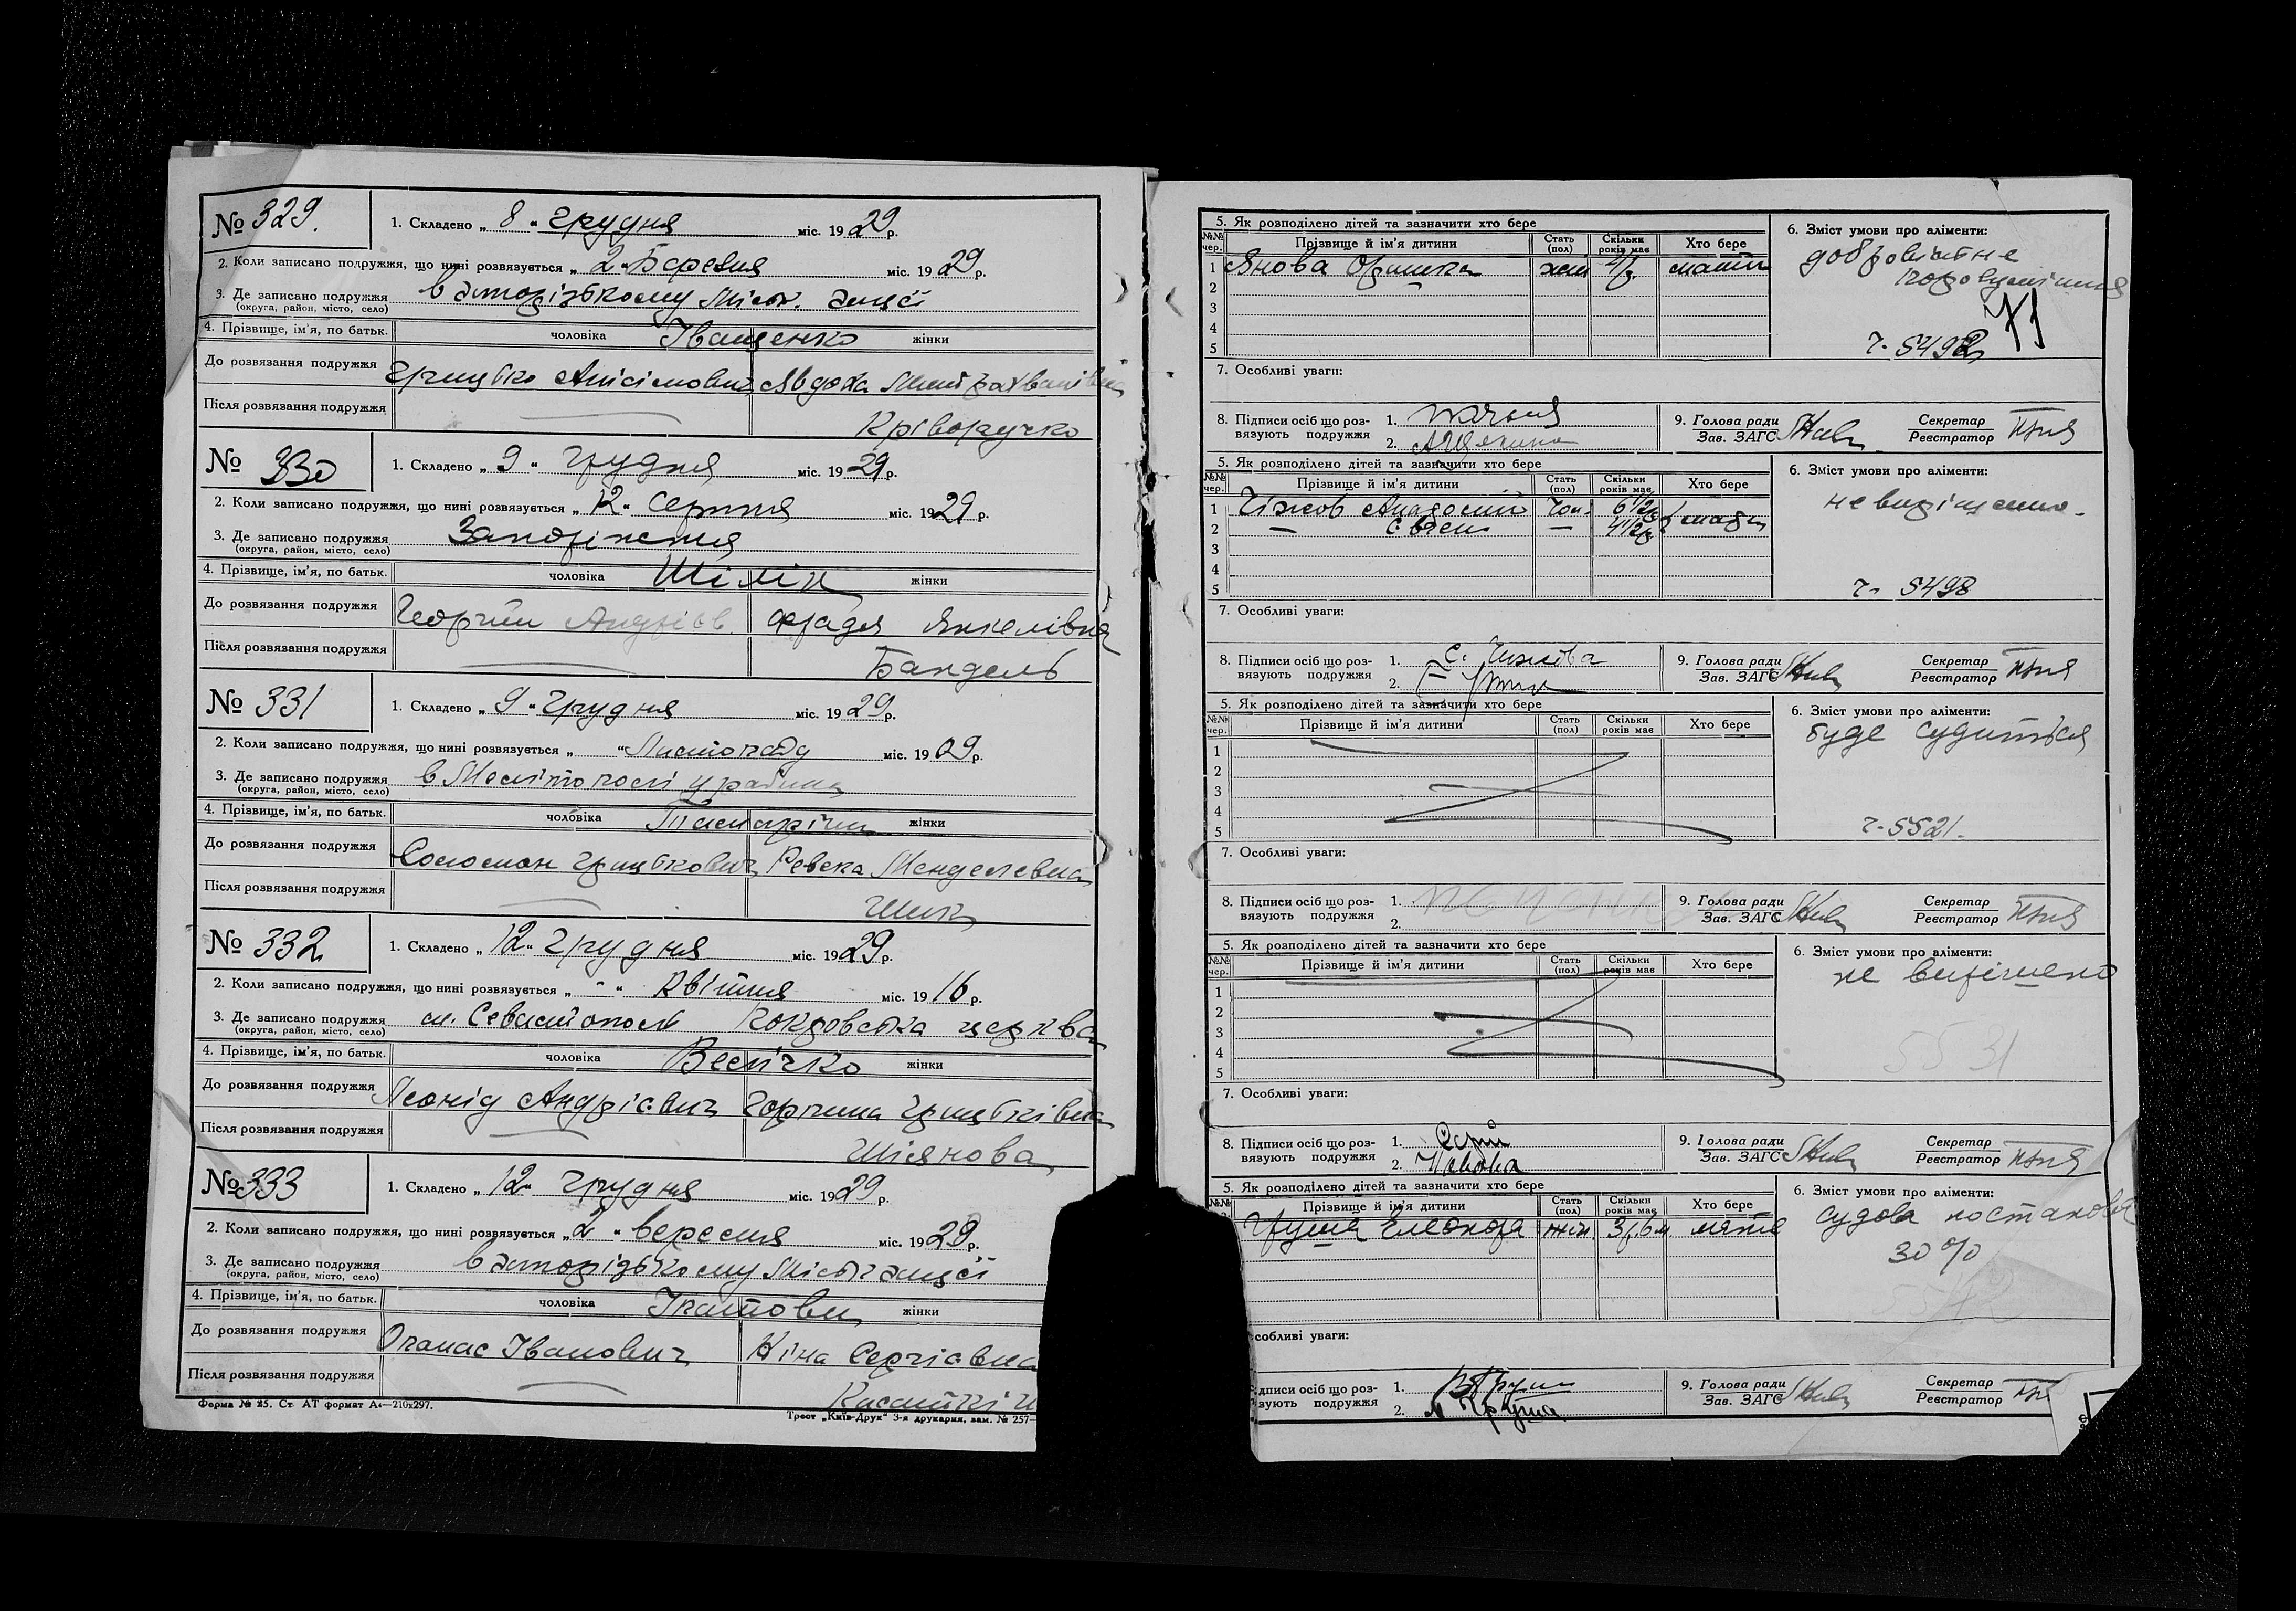 № 329.
1. Складено „ 8 “ грудня міс. 1929 р.
2. Коли записано подружжя, що нині розвязується „ 2 “ Березня міс. 1929 р.
3. Де записано подружжя в Запорізькому Міськ. Загсі
(округа, район, місто, село)
4. Прізвище, ім'я, по батьк. чоловіка Іващенко жінки
До розвязання подружжя Грицько Анісімович Явдоха Митрахванівна
Після розвязання подружжя Кріворучко
№ 330
1. Складено „ 9 “ грудня міс. 1929 р.
2. Коли записано подружжя, що нині розвязується „ 12 “ серпня міс. 1929 р.
3. Де записано подружжя Запоріжжя
(округа, район, місто, село)
4. Прізвище, ім'я, по батьк. чоловіка Шілін жінки
До розвязання подружжя Георгій Андрієв. Фрадя Янкелівна
Після розвязання подружжя Бандель
№ 331
1. Складено „ 9 “ грудня міс. 1929 р.
2. Коли записано подружжя, що нині розвязується „ “ Листопаду міс. 1909 р.
3. Де записано подружжя в Мелітополі у рабина
(округа, район, місто, село)
4. Прізвище, ім'я, по батьк. чоловіка жінки
До розвязання подружжя Соломон Грицькович Ревека Менделевна
Після розвязання подружжя
№ 332
1. Складено „ 12 “ грудня міс. 1929 р.
2. Коли записано подружжя, що нині розвязується „ - “ Квітня міс. 1916 р.
3. Де записано подружжя м. Севастополь Покровська церква
(округа, район, місто, село)
4. Прізвище, ім'я, по батьк. чоловіка Велічко жінки
До розвязання подружжя Леонід Андрієвич Горпина Грицьківна
Після розвязання подружжя Шіянова
№ 333
1. Складено „ 12 “ грудня міс. 1929 р.
2. Коли записано подружжя, що нині розвязується „ 2 “ вересня міс. 1929 р.
3. Де записано подружжя в Запорізькому Міськзагсі
(округа, район, місто, село)
4. Прізвище, ім'я, по батьк. чоловіка Іпатови жінки
До розвязання подружжя Опанас Іванович Ніна Сергієвна
Після розвязання подружжя
Форма № 25. Ст. АТ формат А₄—210х297.
Трест „Київ-Друк“ 3-я друкарня, зам. № 257—
5. Як розподілено дітей та зазначити хто бере
6. Зміст умови про аліменти:
№№ чер. Прізвище й ім'я дитини Стать (пол) Скільки років має Хто бере
1 Янова жін мати
2
3
4
5
добровільне
порозуміння
ч. 5492
7. Особливі уваги:
8. Підписи осіб що розвязують подружжя 1.
2.
9. Голова ради
Зав. ЗАГС
Секретар
Реєстратор
5. Як розподілено дітей та зазначити хто бере
6. Зміст умови про аліменти:
№№ чер. Прізвище й ім'я дитини Стать (пол) Скільки років має Хто бере
1 Чіжов чол. 6 1/2 мати
2 — Євген — 4 1/2
3
4
5
не вирішено.
ч. 5498
7. Особливі уваги:
8. Підписи осіб що розвязують подружжя 1. С. Чижова
2.
9. Голова ради
Зав. ЗАГС
Секретар
Реєстратор
5. Як розподілено дітей та зазначити хто бере
6. Зміст умови про аліменти:
№№ чер. Прізвище й ім'я дитини Стать (пол) Скільки років має Хто бере
1
2
3
4
5
буде судиться
ч. 5521.
7. Особливі уваги:
8. Підписи осіб що розвязують подружжя 1.
2.
9. Голова ради
Зав. ЗАГС
Секретар
Реєстратор
5. Як розподілено дітей та зазначити хто бере
6. Зміст умови про аліменти:
№№ чер. Прізвище й ім'я дитини Стать (пол) Скільки років має Хто бере
1
2
3
4
5
не вирішено
5531
7. Особливі уваги:
8. Підписи осіб що розвязують подружжя 1.
2.
9. Голова ради
Зав. ЗАГС
Секретар
Реєстратор
5. Як розподілено дітей та зазначити хто бере
6. Зміст умови про аліменти:
Прізвище й ім'я дитини Стать (пол) Скільки років має Хто бере
Груша Елеонора жін. 3 р. 6 м мати
судова постанова
30%
собливі уваги:
дписи осіб що роз-
зують подружжя 1.
2. Груша
9. Голова ради
Зав. ЗАГС
Секретар
Реєстратор